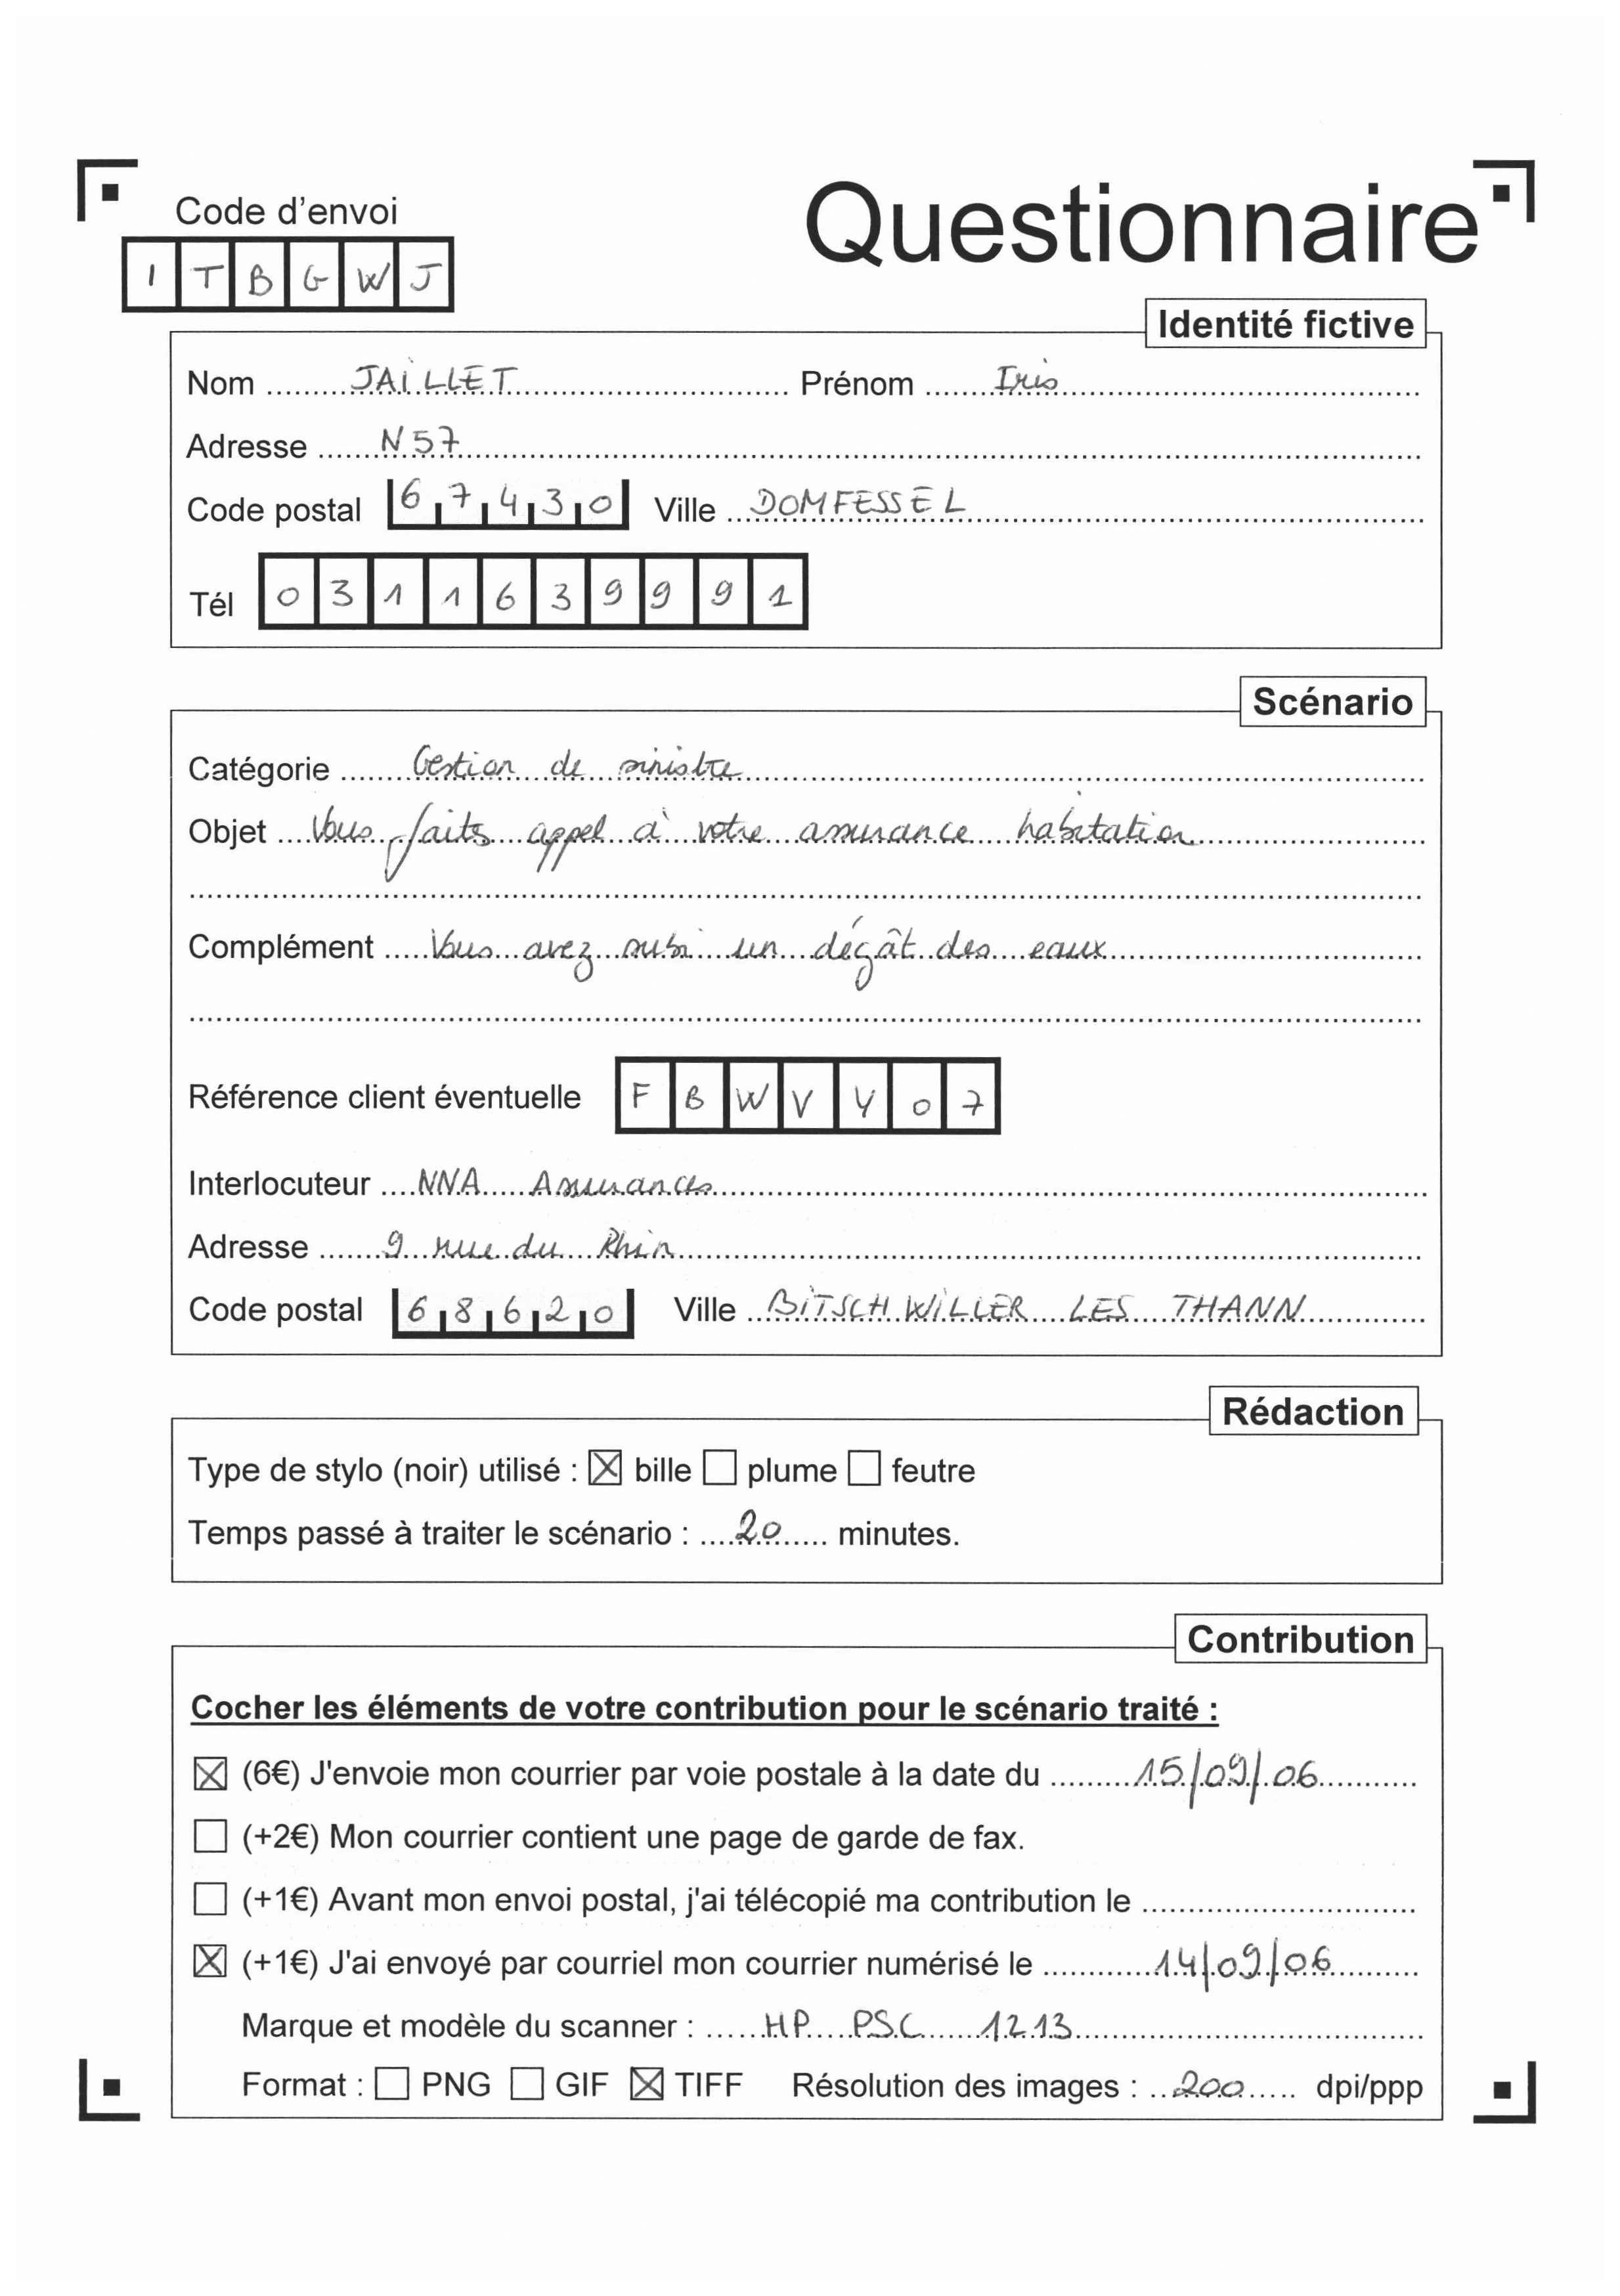 Questionnaire
Code d'envoi
I T B G W J
Identité fictive
Nom JAILLET Prénom Iris
Adresse N 57
Code postal 67430 Ville DOMFESSEL
Tél 0311639991
Scénario
Catégorie Gestion de sinistre
Objet Vous faits appel à votre assurance habitation
Complément Vous avez subi un dégât des eaux
Référence client éventuelle F B W V Y 0 7
Interlocuteur NNA Assurances
Adresse 9 rue du Rhin
Code postal 68620 Ville BITSCHWILLER LES THANN
Rédaction
Type de stylo (noir) utilisé : ☒ bille ☐ plume ☐ feutre
Temps passé à traiter le scénario : 20 minutes.
Contribution
Cocher les éléments de votre contribution pour le scénario traité :
☒ (6€) J'envoie mon courrier par voie postale à la date du 15/09/06
☐ (+2€) Mon courrier contient une page de garde de fax.
☐ (+1€) Avant mon envoi postal, j'ai télécopié ma contribution le
☒ (+1€) J'ai envoyé par courriel mon courrier numérisé le 14/09/06
Marque et modèle du scanner : HP PSC 1213
Format : ☐ PNG ☐ GIF ☒ TIFF Résolution des images : 200 dpi/ppp